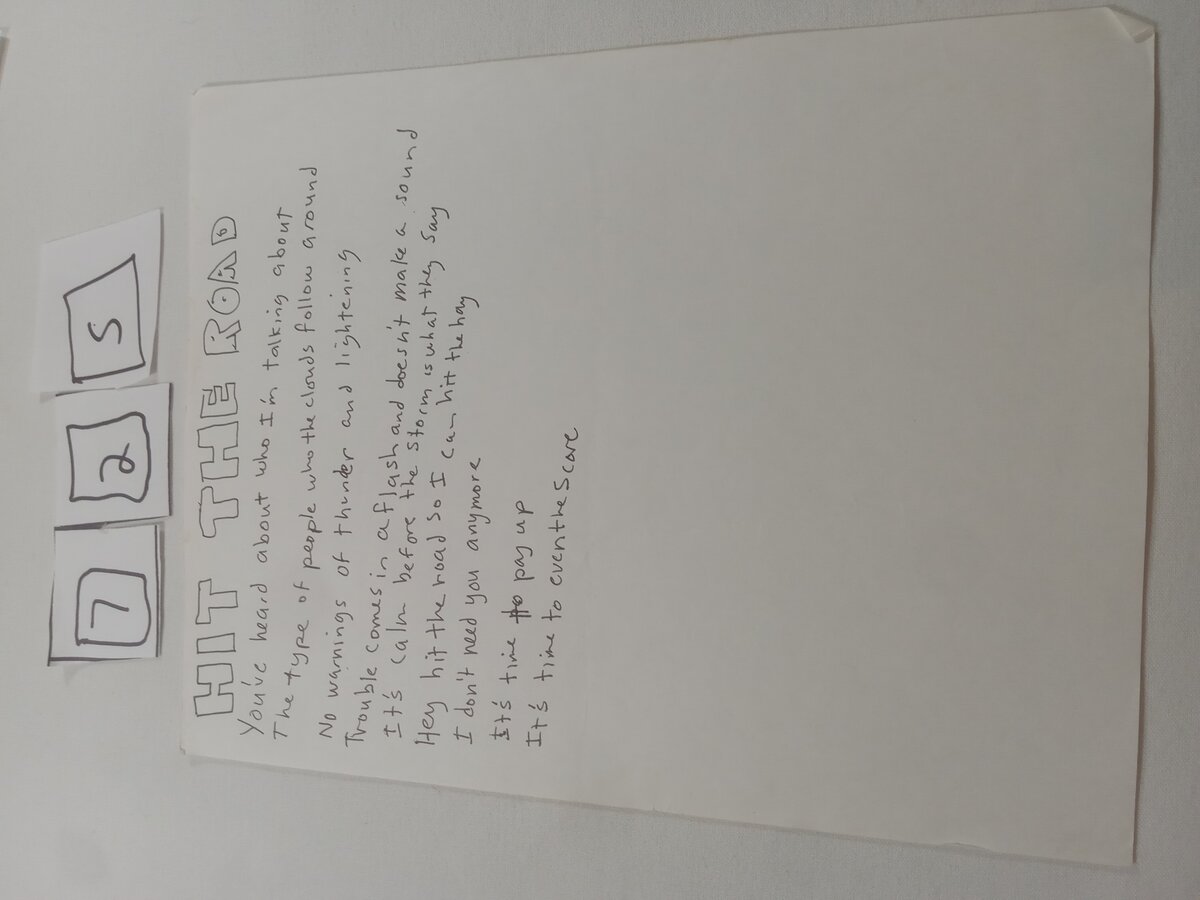 7 2 5
HIT THE ROAD
You've heard about who I'm talking about
The type of people who the clouds follow around
No warnings of thunder and lightening
Trouble comes in a flash and doesn't make a sound
It's calm before the storm is what they say
Hey hit the road so I can hit the hay
I don't need you anymore
It's time to pay up
It's time to even the score